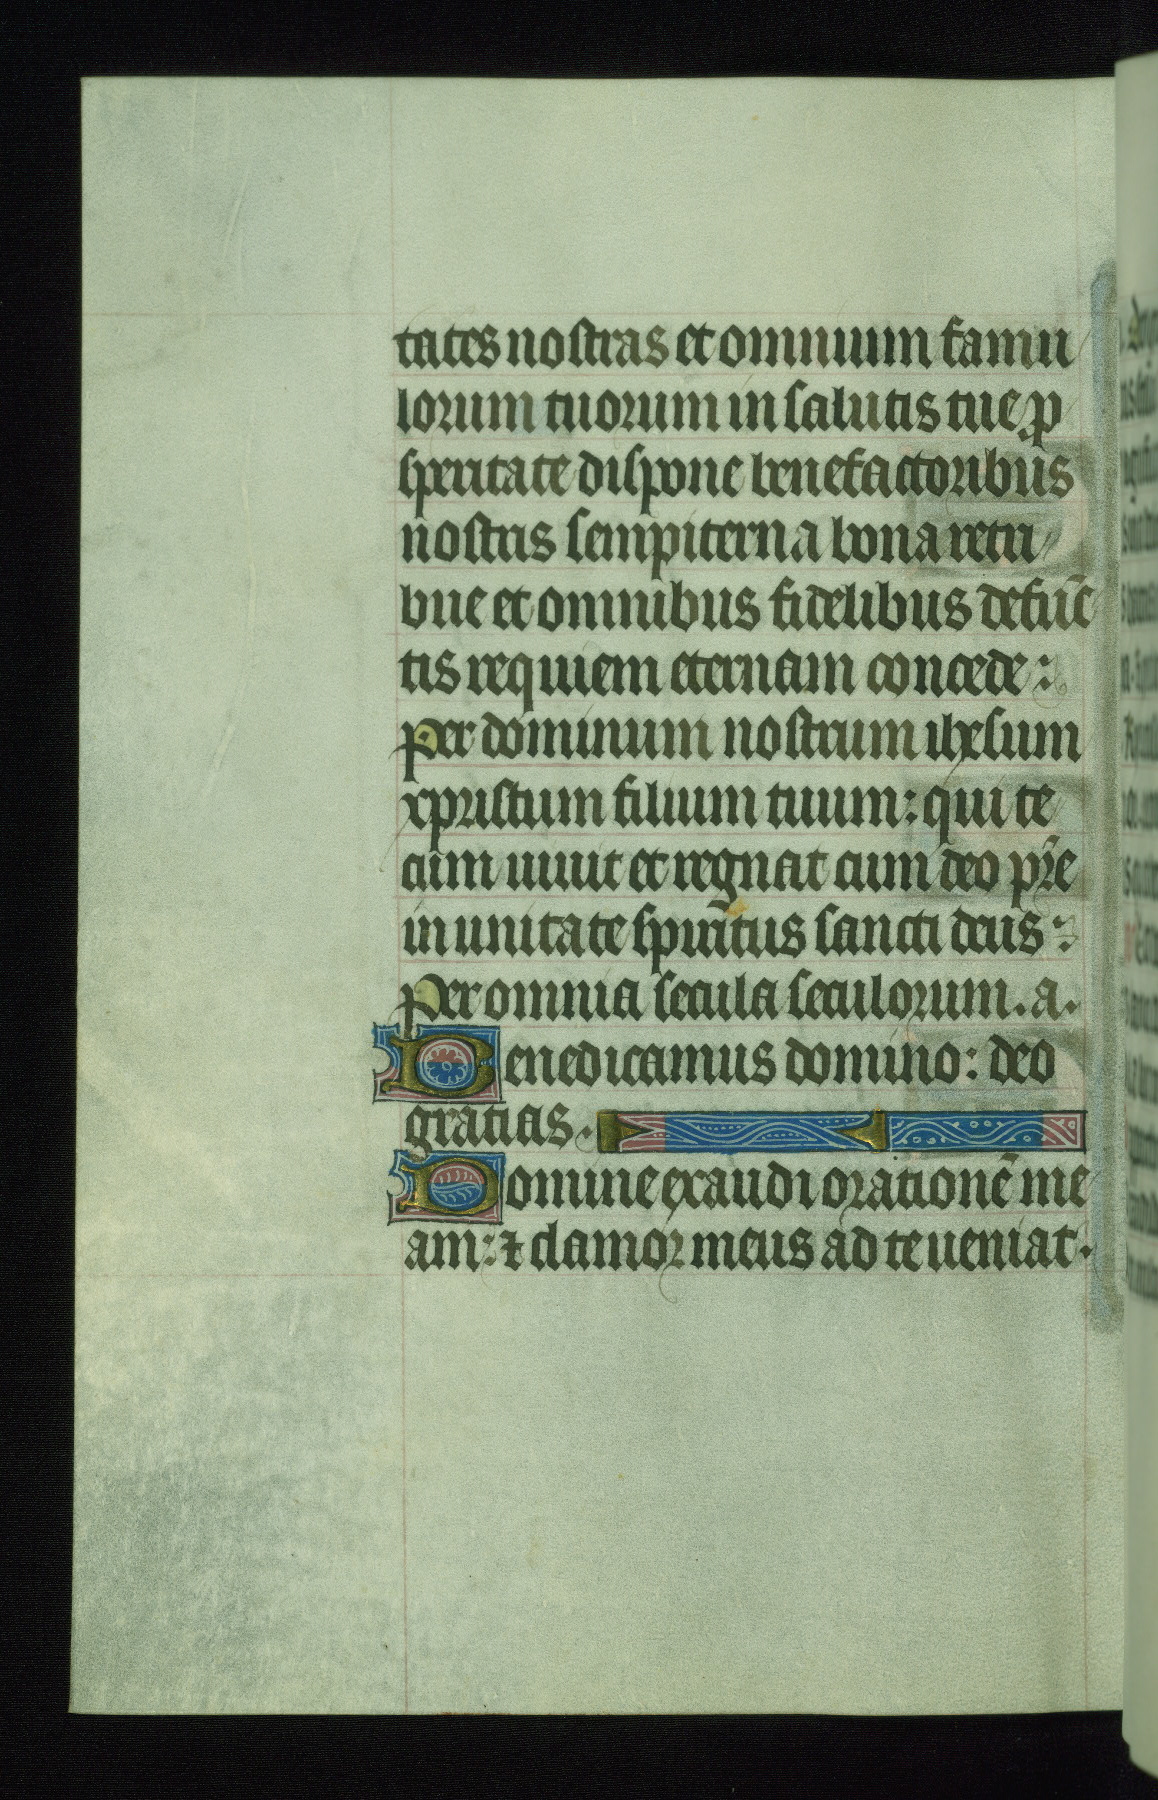 tates nostras et omnium famu
lorum tuorum in salutis tue p
speritate dispone benefactoribus
nostris sempiterna bona retri
bue et omnibus fidelibus defūc
tis requiem eternam concede:
Per dominum nostrum ihesum
xpristum filium tuum: qui te
cum uiuit et regnat cum deo pr̄e
in unitate spiritus sancti deus:
Per omnia secula seculorum. a.
Benedicamus domino: deo
gratias.
Domine exaudi orationē me
am: ⁊ clamor meus ad te ueniat.